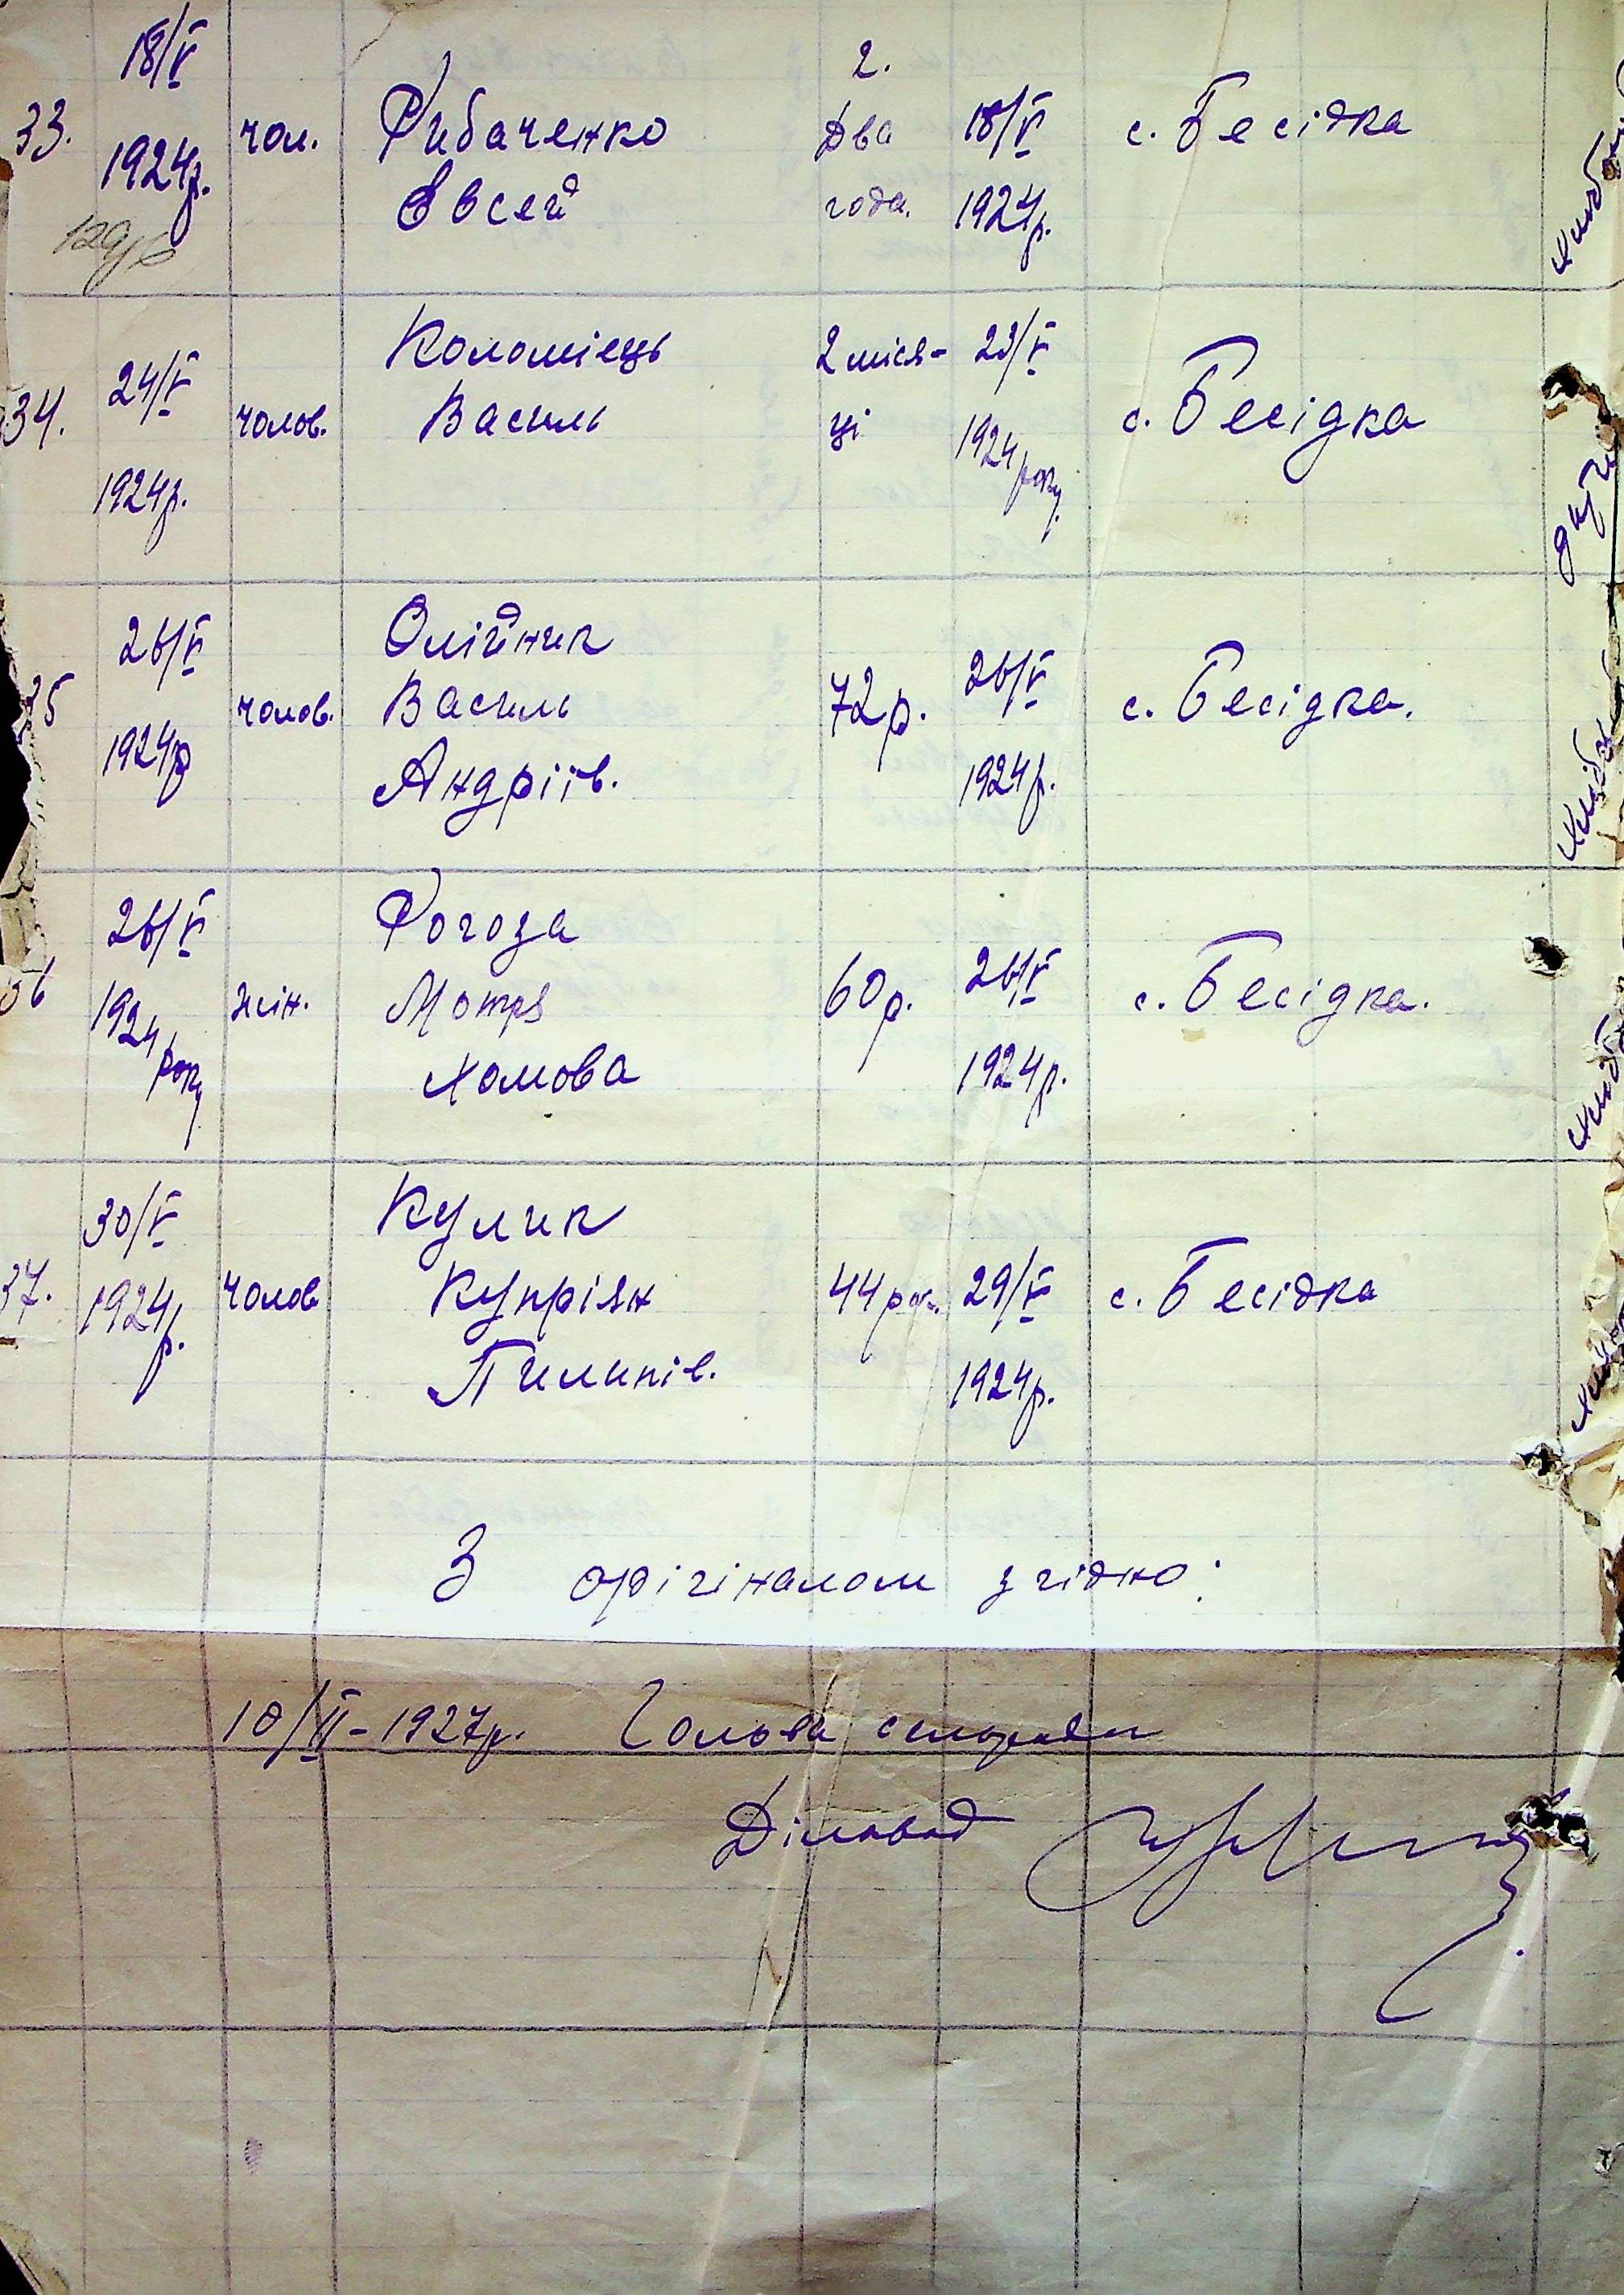 33.
18/V
1924р.
чол.
Рибаченко
Євсей
2.
Два
года.
18/V
1924р.
с. Бесідка
34.
24/V
1924р.
чолов.
Коломієць
Василь
2 міся-
ці
23/V
1924 року.
с. Бесідка
35
26/V
1924р
чолов.
Олійник
Василь
Андріїв.
72р.
26/V
1924р.
с. Бесідка.
36
26/V
1924 року
жін.
Рогоза
Мотря
Хомова
60р.
26/V
1924р.
с. Бесідка.
37.
30/V
1924р.
чолов
Кулик
Купріян
Пилипів.
44 рок.
29/V
1924р.
с. Бесідка
З орігіналом згідно:
10/II-1927р. Голова сільради
Діловод